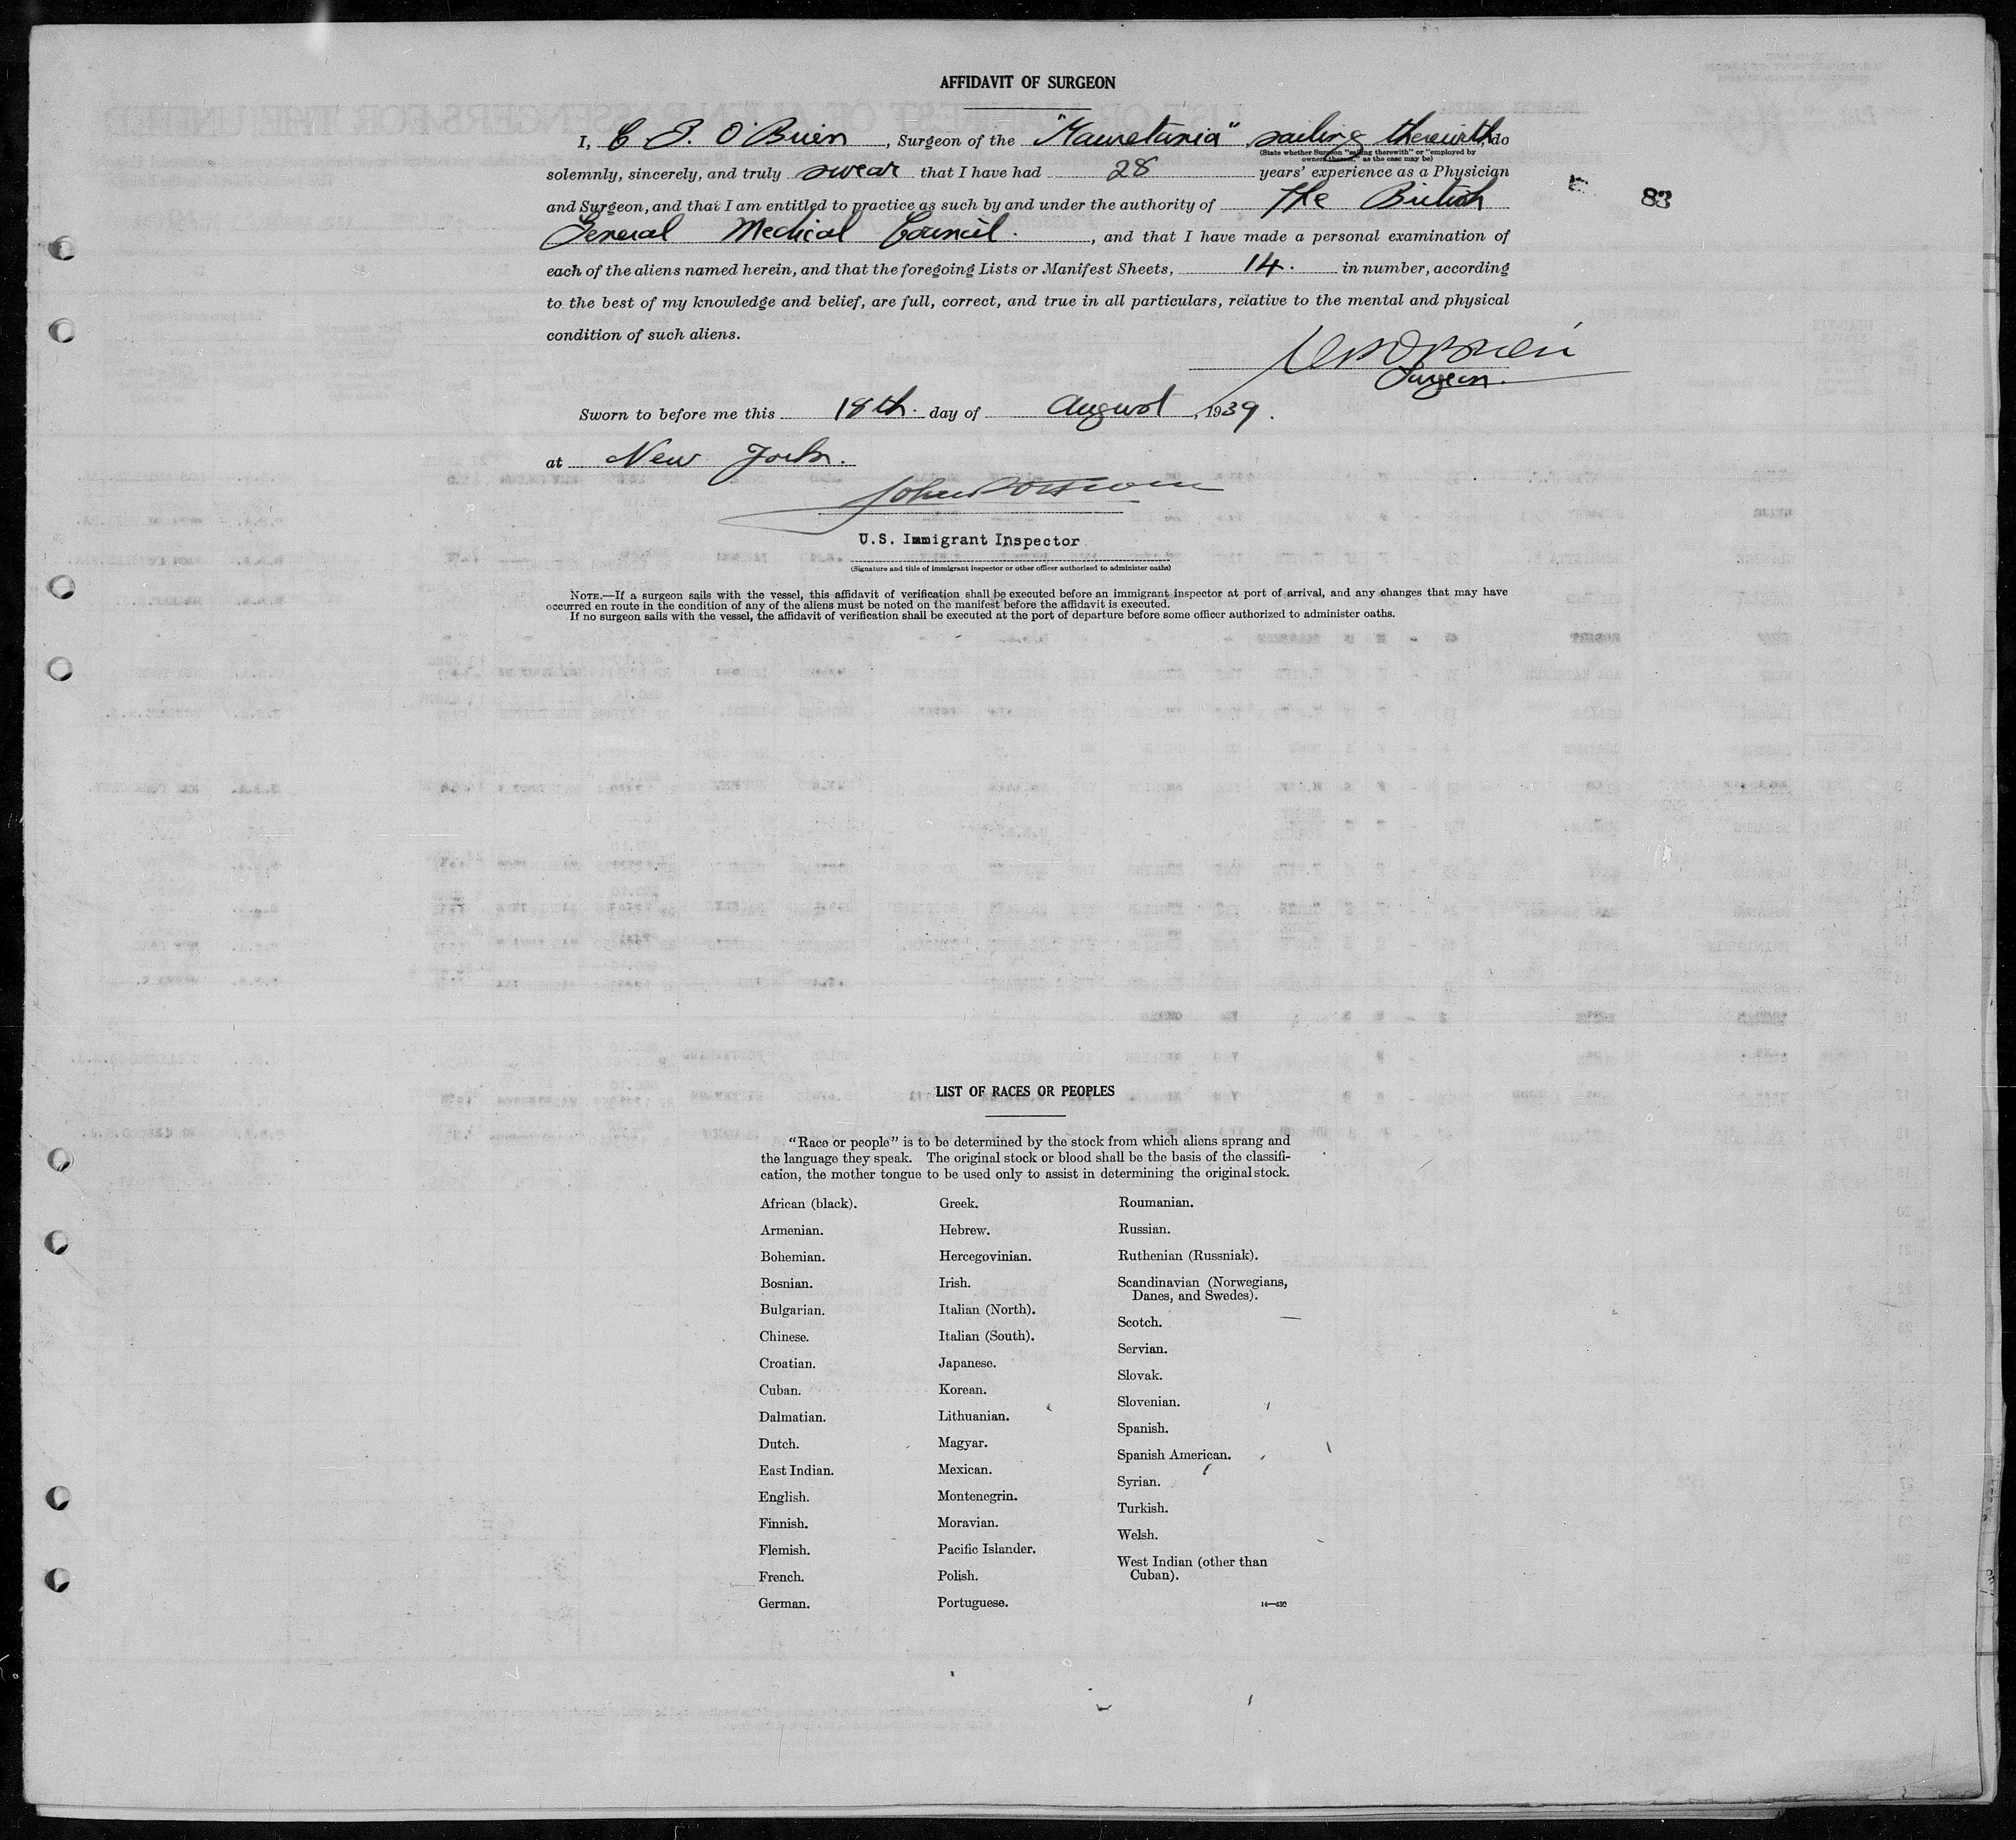 AFFIDAVIT OF SURGEON
I, C E. O'Brien, Surgeon of the "Mauretania" sailing therewith, do
(State whether Surgeon "sailing therewith" or "employed by
owners thereof," as the case may be)
solemnly, sincerely, and truly swear that I have had 28 years' experience as a Physician
and Surgeon, and that I am entitled to practice as such by and under the authority of The British
83
General Medical Council. , and that I have made a personal examination of
each of the aliens named herein, and that the foregoing Lists or Manifest Sheets, 14. in number, according
to the best of my knowledge and belief, are full, correct, and true in all particulars, relative to the mental and physical
condition of such aliens.
O'Brien
Surgeon.
Sworn to before me this 18th. day of August, 1939.
at New York.
John
U.S. Immigrant Inspector
(Signature and title of immigrant inspector or other officer authorized to administer oaths)
NOTE.—If a surgeon sails with the vessel, this affidavit of verification shall be executed before an immigrant inspector at port of arrival, and any changes that may have
occurred en route in the condition of any of the aliens must be noted on the manifest before the affidavit is executed.
If no surgeon sails with the vessel, the affidavit of verification shall be executed at the port of departure before some officer authorized to administer oaths.
LIST OF RACES OR PEOPLES
"Race or people" is to be determined by the stock from which aliens sprang and
the language they speak. The original stock or blood shall be the basis of the classifi-
cation, the mother tongue to be used only to assist in determining the original stock.
African (black).
Armenian.
Bohemian.
Bosnian.
Bulgarian.
Chinese.
Croatian.
Cuban.
Dalmatian.
Dutch.
East Indian.
English.
Finnish.
Flemish.
French.
German.
Greek.
Hebrew.
Hercegovinian.
Irish.
Italian (North).
Italian (South).
Japanese.
Korean.
Lithuanian.
Magyar.
Mexican.
Montenegrin.
Moravian.
Pacific Islander.
Polish.
Portuguese.
Roumanian.
Russian.
Ruthenian (Russniak).
Scandinavian (Norwegians,
Danes, and Swedes).
Scotch.
Servian.
Slovak.
Slovenian.
Spanish.
Spanish American.
Syrian.
Turkish.
Welsh.
West Indian (other than
Cuban).
14—430